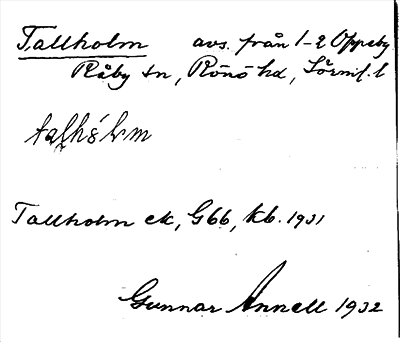 Tallholm avs. från 1-2 Oppeby
Råby sn, Rönö hd, Sörml. l
Tallholm ek, G66, kb. 1931
Gunnar Annell 1932